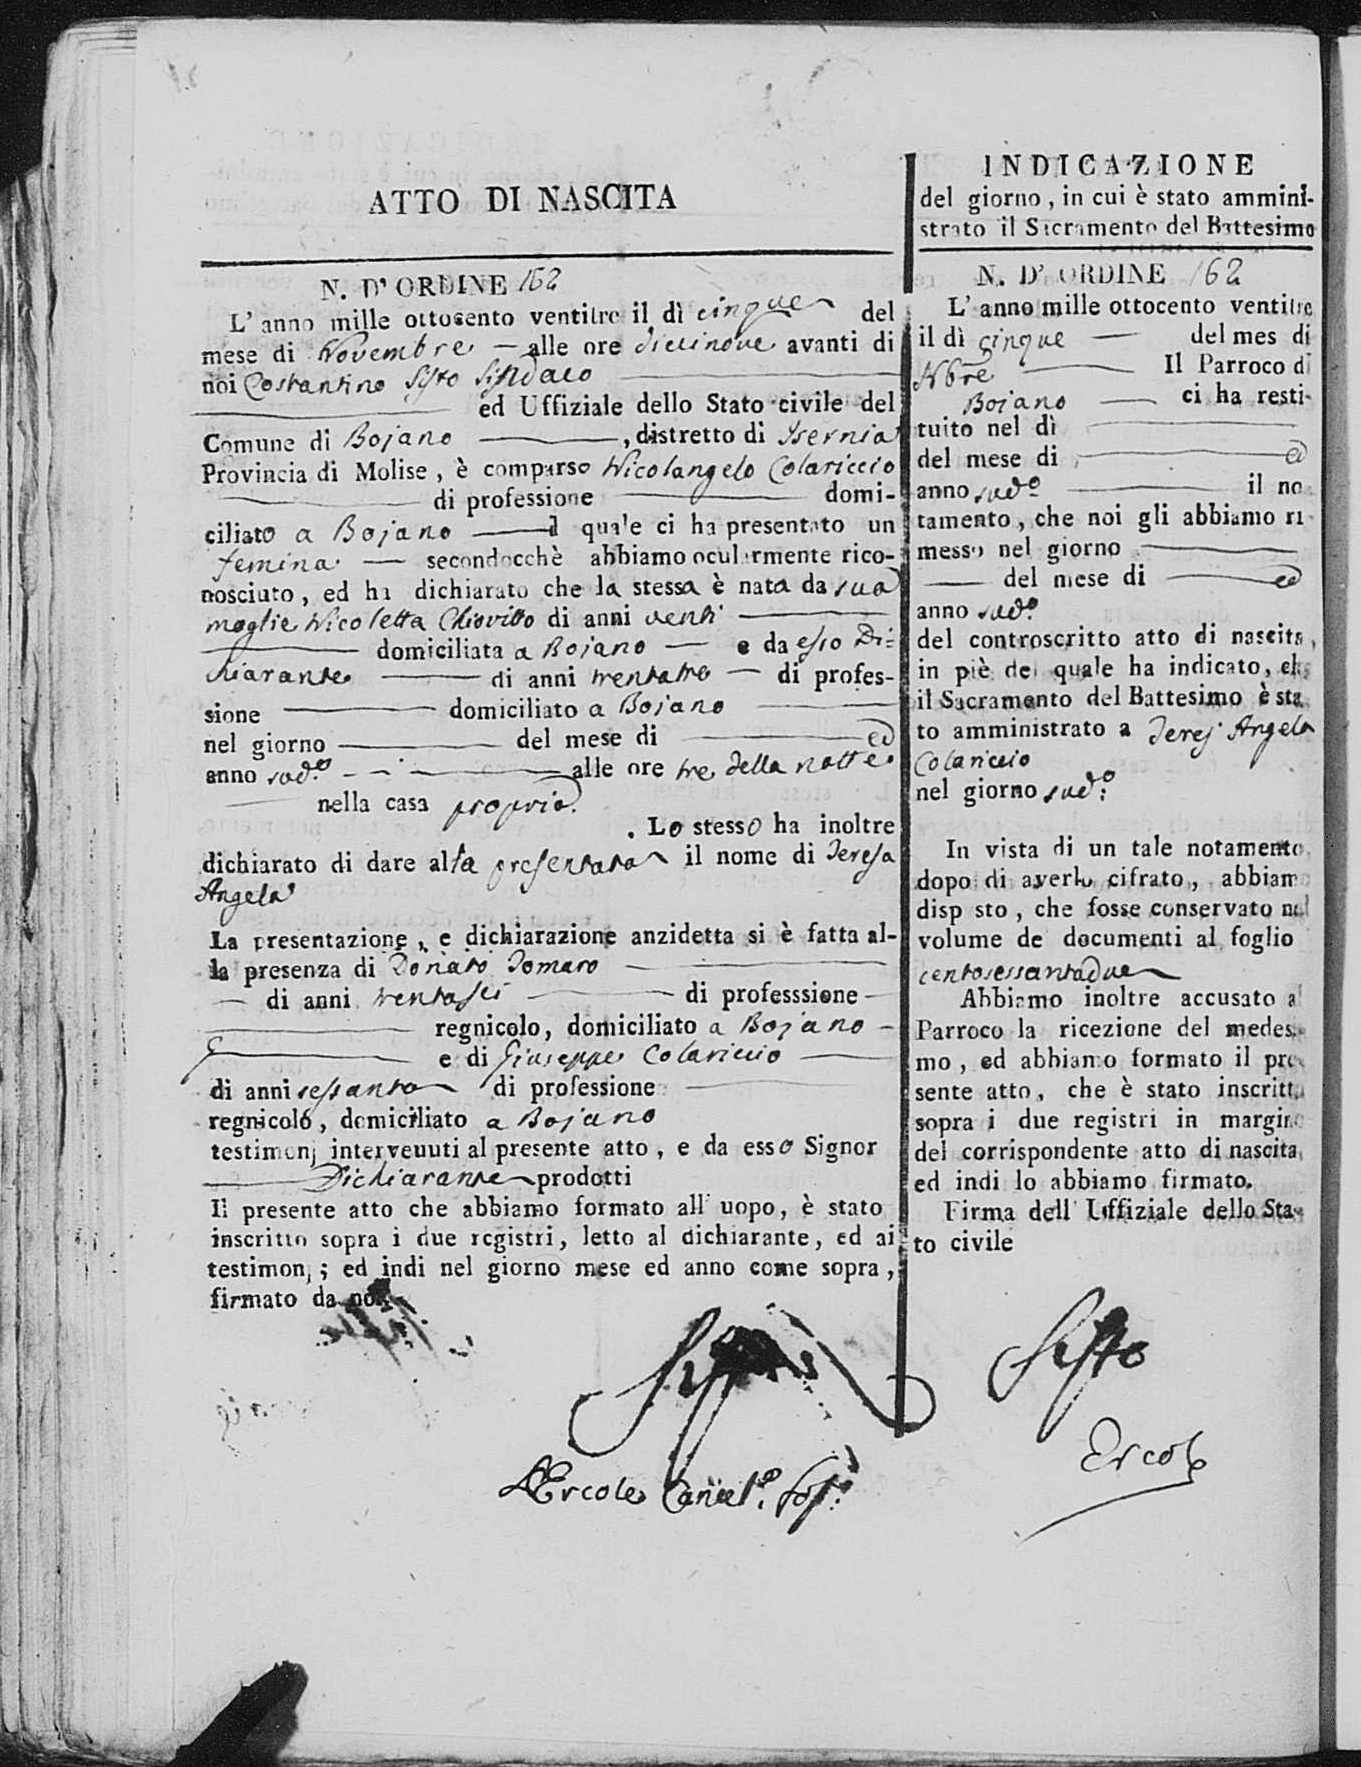 ATTO DI NASCITA
N. D' ORDINE 162
L' anno mille ottocento ventitre il dì cinque del
mese di Novembre alle ore diecinove avanti di
noi Costantino Sisto Sindaco
ed Uffiziale dello Stato civile del
Comune di Bojano , distretto di Isernia
Provincia di Molise , è comparso Nicolangelo Colariccio
di professione domi-
ciliato a Bojano il quale ci ha presentato un
femina secondocchè abbiamo ocularmente rico-
nosciuto , ed ha dichiarato che la stessa è nata da sua
moglie Nicoletta Chiovitto di anni venti
domiciliata a Bojano e da esso Di=
chiarante di anni trentatre di profes-
sione domiciliato a Bojano
nel giorno del mese di ed
anno sud.º alle ore tre della notte
nella casa propria.
. Lo stesso ha inoltre
dichiarato di dare alla presentata il nome di Teresa
Angela
La presentazione , e dichiarazione anzidetta si è fatta al-
la presenza di Donato Tomaro
di anni trentasei di professsione
regnicolo, domiciliato a Bojano
e di Giuseppe Colariccio
di anni sessanta di professione
regnicolo , domiciliato a Bojano
testimonj intervenuti al presente atto , e da esso Signor
Dichiarante prodotti
Il presente atto che abbiamo formato all' uopo, è stato
inscritto sopra i due registri, letto al dichiarante, ed ai
testimonj ; ed indi nel giorno mese ed anno come sopra ,
firmato da noi.
Sisto
D'Ercole Canc.º Sos.º
INDICAZIONE
del giorno , in cui è stato ammini-
strato il Sacramento del Battesimo
N. D' ORDINE 162
L' anno mille ottocento ventitre
il dì cinque del mes di
Nbre Il Parroco di
Bojano ci ha resti-
tuito nel dì
del mese di ed
anno sud.º il no
tamento , che noi gli abbiamo ri-
messo nel giorno
del mese di ed
anno sud.º
del controscritto atto di nascita ,
in piè del quale ha indicato, che
il Sacramento del Battesimo è sta
to amministrato a Teres Angela
Colariccio
nel giorno sud.º
In vista di un tale notamento
dopo di averlo cifrato , abbiamo
disp sto , che fosse conservato nel
volume de documenti al foglio
centosessantadue
Abbiamo inoltre accusato al
Parroco la ricezione del medesi-
mo , ed abbiamo formato il pre-
sente atto , che è stato inscritto
sopra i due registri in margine
del corrispondente atto di nascita
ed indi lo abbiamo firmato.
Firma dell' Uffiziale dello Sta-
to civile
Sisto
Ercole